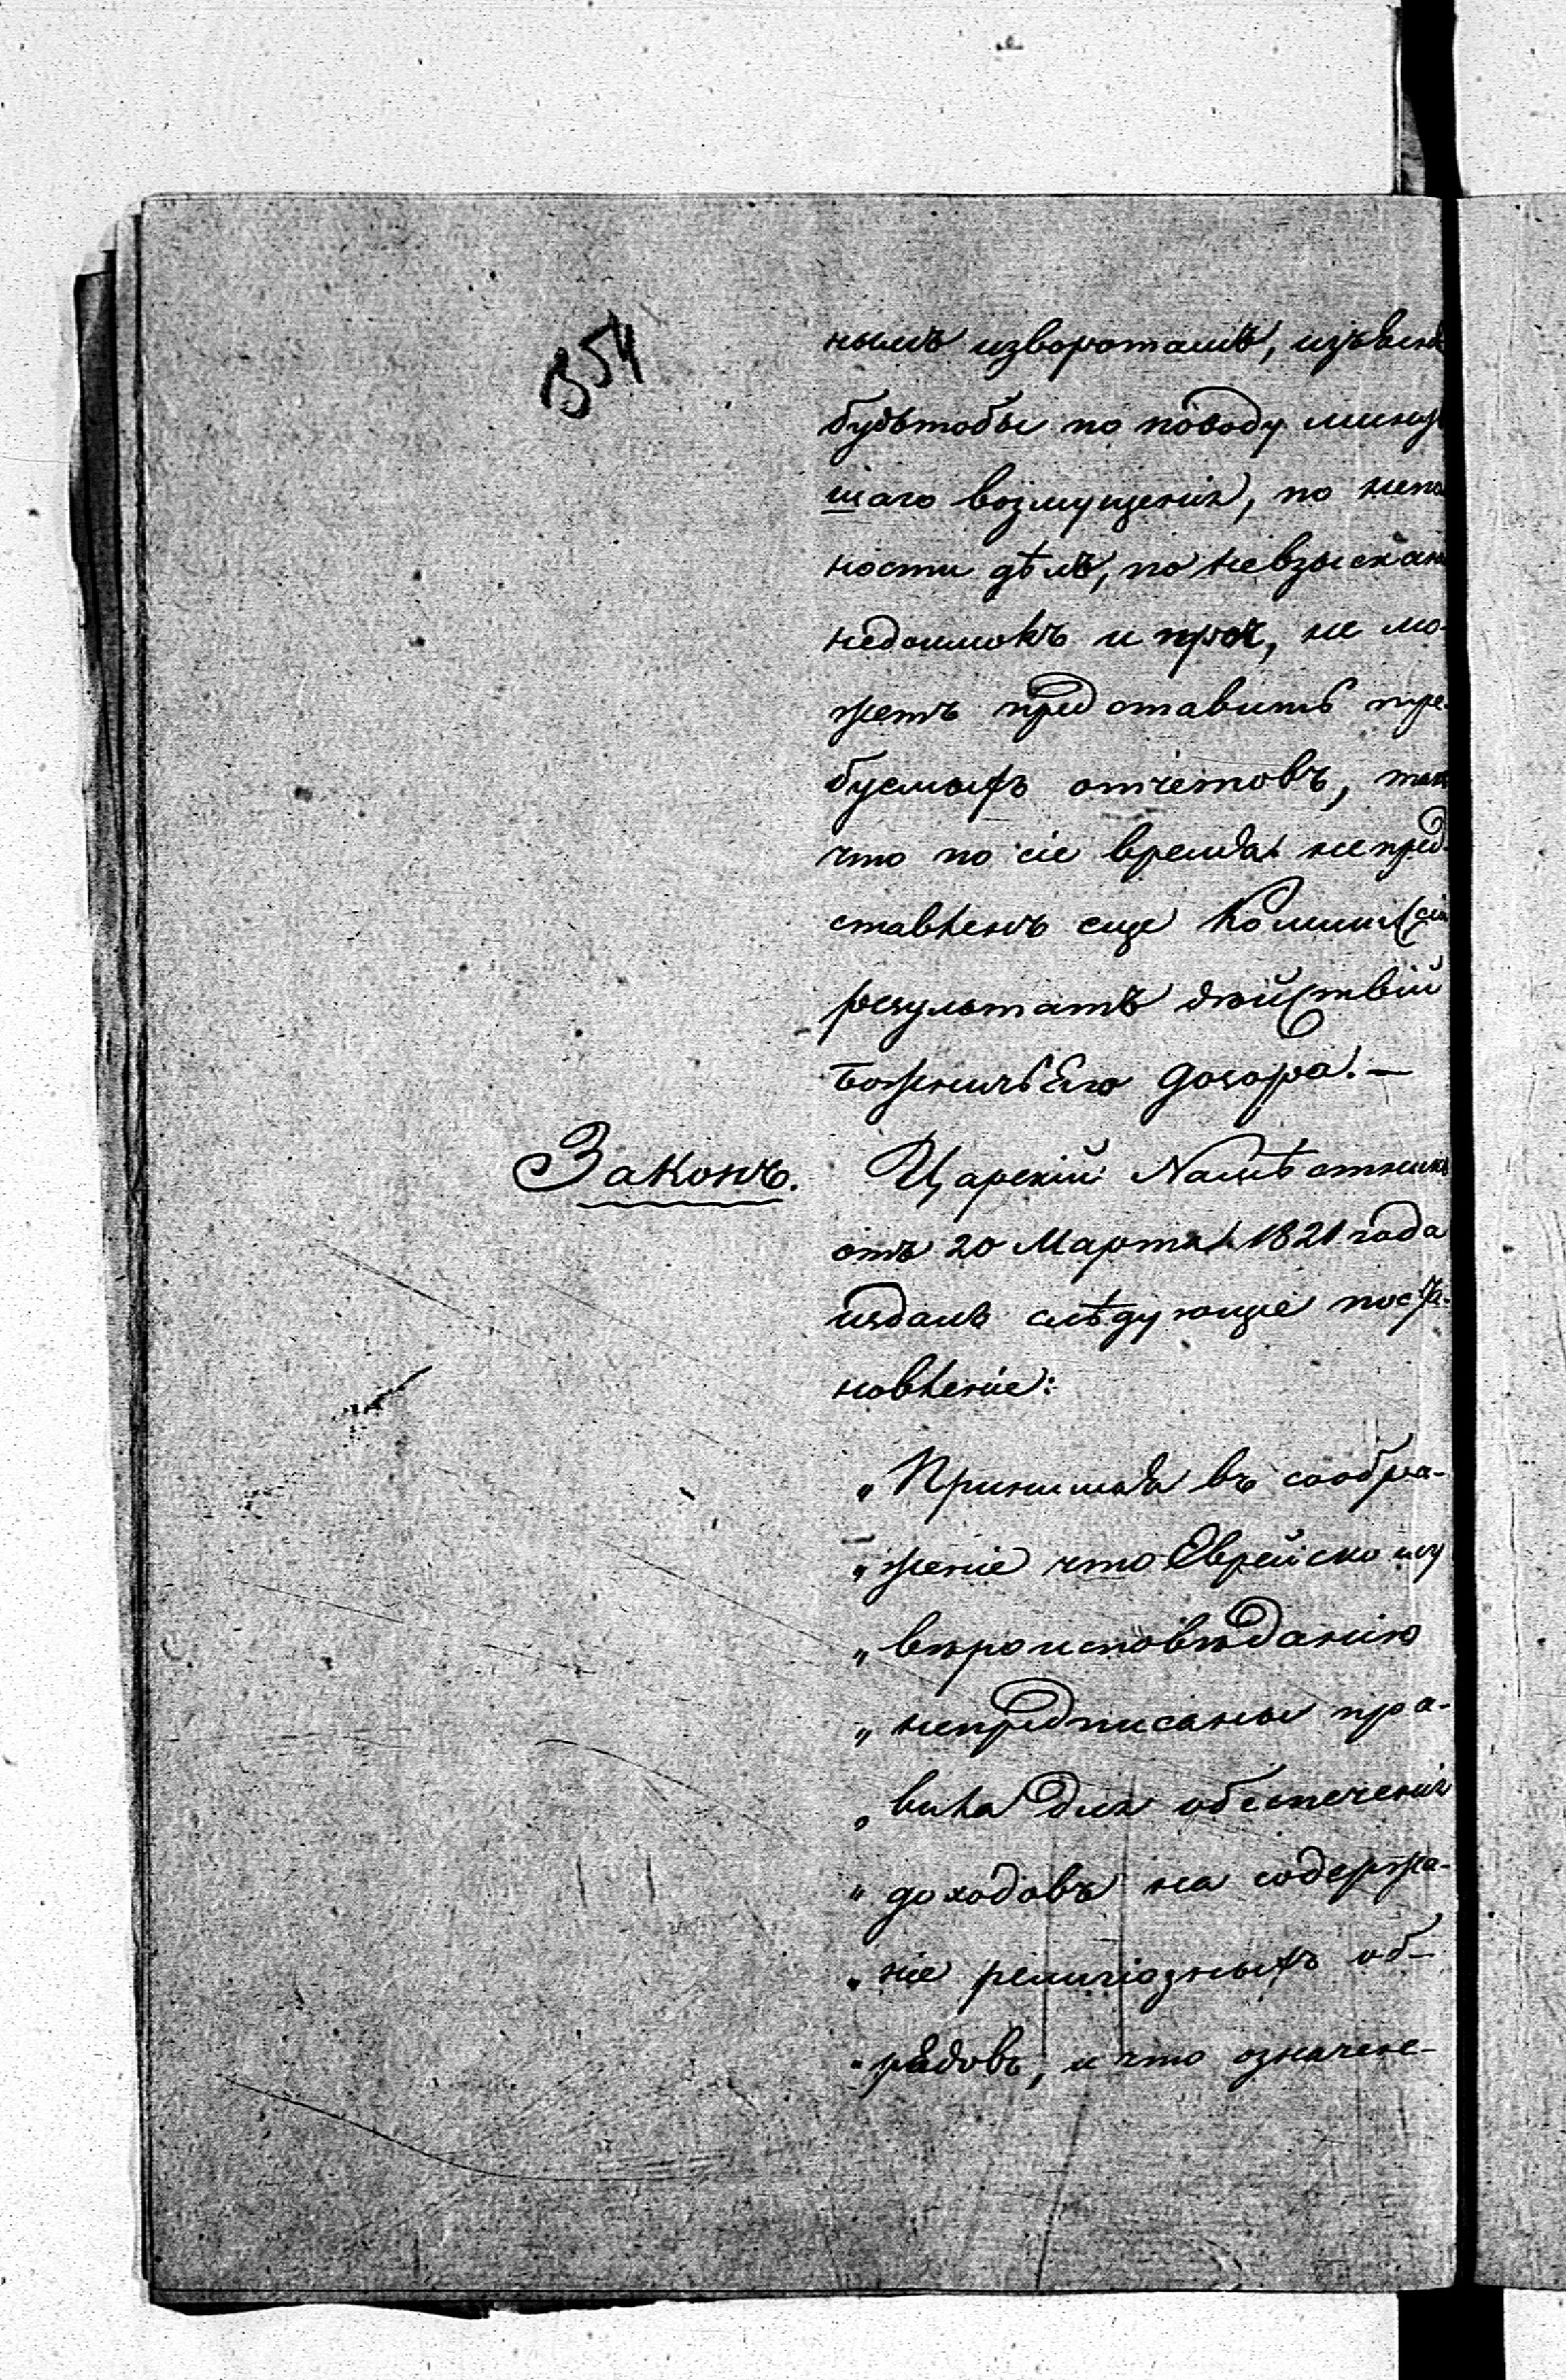 354
нымъ изворотамъ, изъвин
будьтобы по поводу минув
шаго возмущенія, по непо
ности дѣлъ, по невзыскан
недоимокъ и проч, не мо-
жетъ представить тре-
буемыхъ отчетовъ, так
что по сіе время непред-
ставленъ еще Коммиссіи
результатъ дѣйствій
Божничьяго дозора.—
Законъ. Царскій Намѣстник
отъ 20 Марта 1821 года
издалъ слѣдующіе поста-
новленіе:
„Принимая въ сообра-
„женіе что Еврейскому
„вѣроисповѣданію
„непредписаны пра-
„вила для обеспеченія
„доходовъ на содержа-
„ніе религіозныхъ об-
„рядовъ, и что означене-